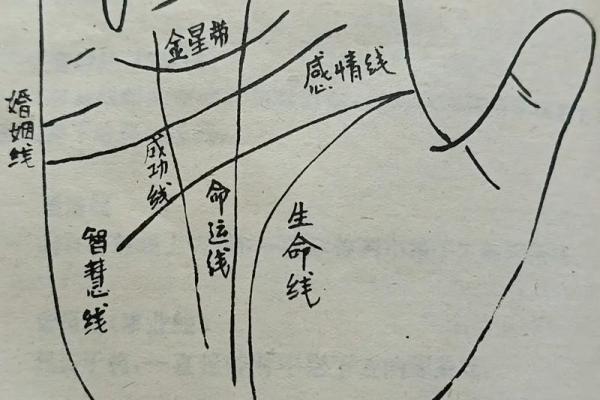 金星带
感情线
婚姻线
成功线
命运线
生命线
智慧线